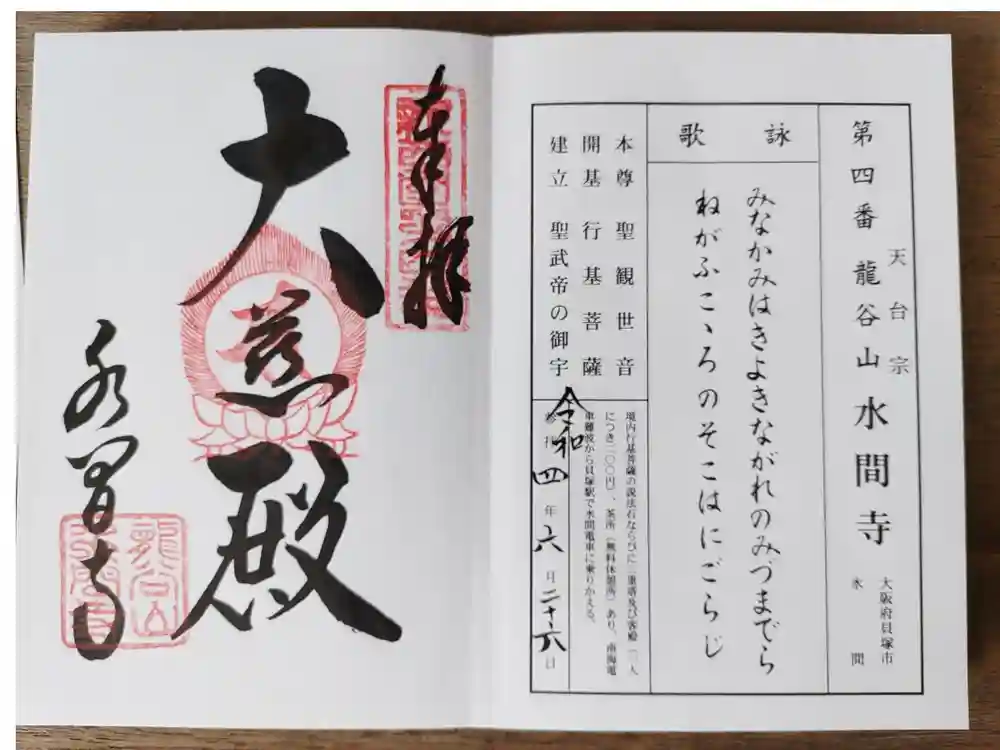 天台宗
第四番 龍谷山 水間寺
大阪府貝塚市
水間
詠歌
みなかみはきよきながれのみづまでら
ねがふこゝろのそこはにごらじ
本尊 聖観世音
開基 行基菩薩
建立 聖武帝の御宇
境内行基菩薩の説法石ならびに三重塔及び客殿(一人
につき二〇〇円)、茶所(無料休憩所)あり、南海電
車難波から貝塚駅で水間電車に乗りかえる。
令和四年六月二十六日
奉拝
大慈殿
水間寺
龍谷山